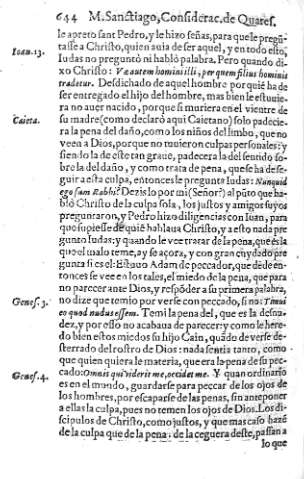 644 M. Sanctiago, Considerac. de Quares.
le apretò sant Pedro, y le hizo señas, para que le pregũ-
Ioan. 13. tasse a Christo, quien auia de ser aquel, y en todo esto,
Iudas no preguntò ni hablò palabra. Pero quando di-
xo Christo: Væ autem homini illi, per quem filius hominis
tradetur. Desdichado de aquel hombre por quiẽ ha de
ser entregado el hijo del hombre, mas bien le estuuie-
ra no auer nacido, porque si muriera en el vientre de
Caieta. su madre (como declarò aqui Caietano) solo padecie-
ra la pena del daño, como los niños del limbo, que no
veen a Dios, porque no tuuieron culpas personales: y
siendo la de este tan graue, padecera la del sentido so-
bre la del daño, y como trata de pena, que se ha de se-
guir a esta culpa, entonces le pregunta Iudas: Nunquid
ego sum Rabbi? Dezislo por mi (Señor?) al pũto que ha-
blò Christo de la culpa sola, los justos y amigos suyos
preguntaron, y Pedro hizo diligencias con Iuan, para
que supiesse de quiẽ hablaua Christo, y a esto nada pre
gunto Iudas: y quando le vee tratar de la pena, que es la
que el malo teme, ay se açora, y con gran cuydado pre
gunta si es el: Estuuo Adam de peccador, que desde en-
tonces se vee en los tales, el miedo de la pena, que para
no parecer ante Dios, y respõder a su primera palabra,
Genes. 3. no dize que temio por verse con peccado, si no: Timui
eo quod nudus essem. Temi la pena del, que es la desnu-
dez, y por esso no acabaua de parecer: y como le here-
do bien estos miedos su hijo Cain, quãdo de verse de-
sterrado del rostro de Dios: nada sentia tanto, como
que quien quiera le mataria, que era la pena de su pec-
Genes. 4. cado: Omnis qui viderit me, occidet me. Y quan ordinario
es en el mundo, guardarse para peccar de los ojos de
los hombres, por escaparse de las penas, sin anteponer
a ellas la culpa, pues no temen los ojos de Dios. Los di-
scipulos de Christo, como justos, y que mas caso hazẽ
de la culpa que de la pena: de la ceguera deste, passan a
lo que